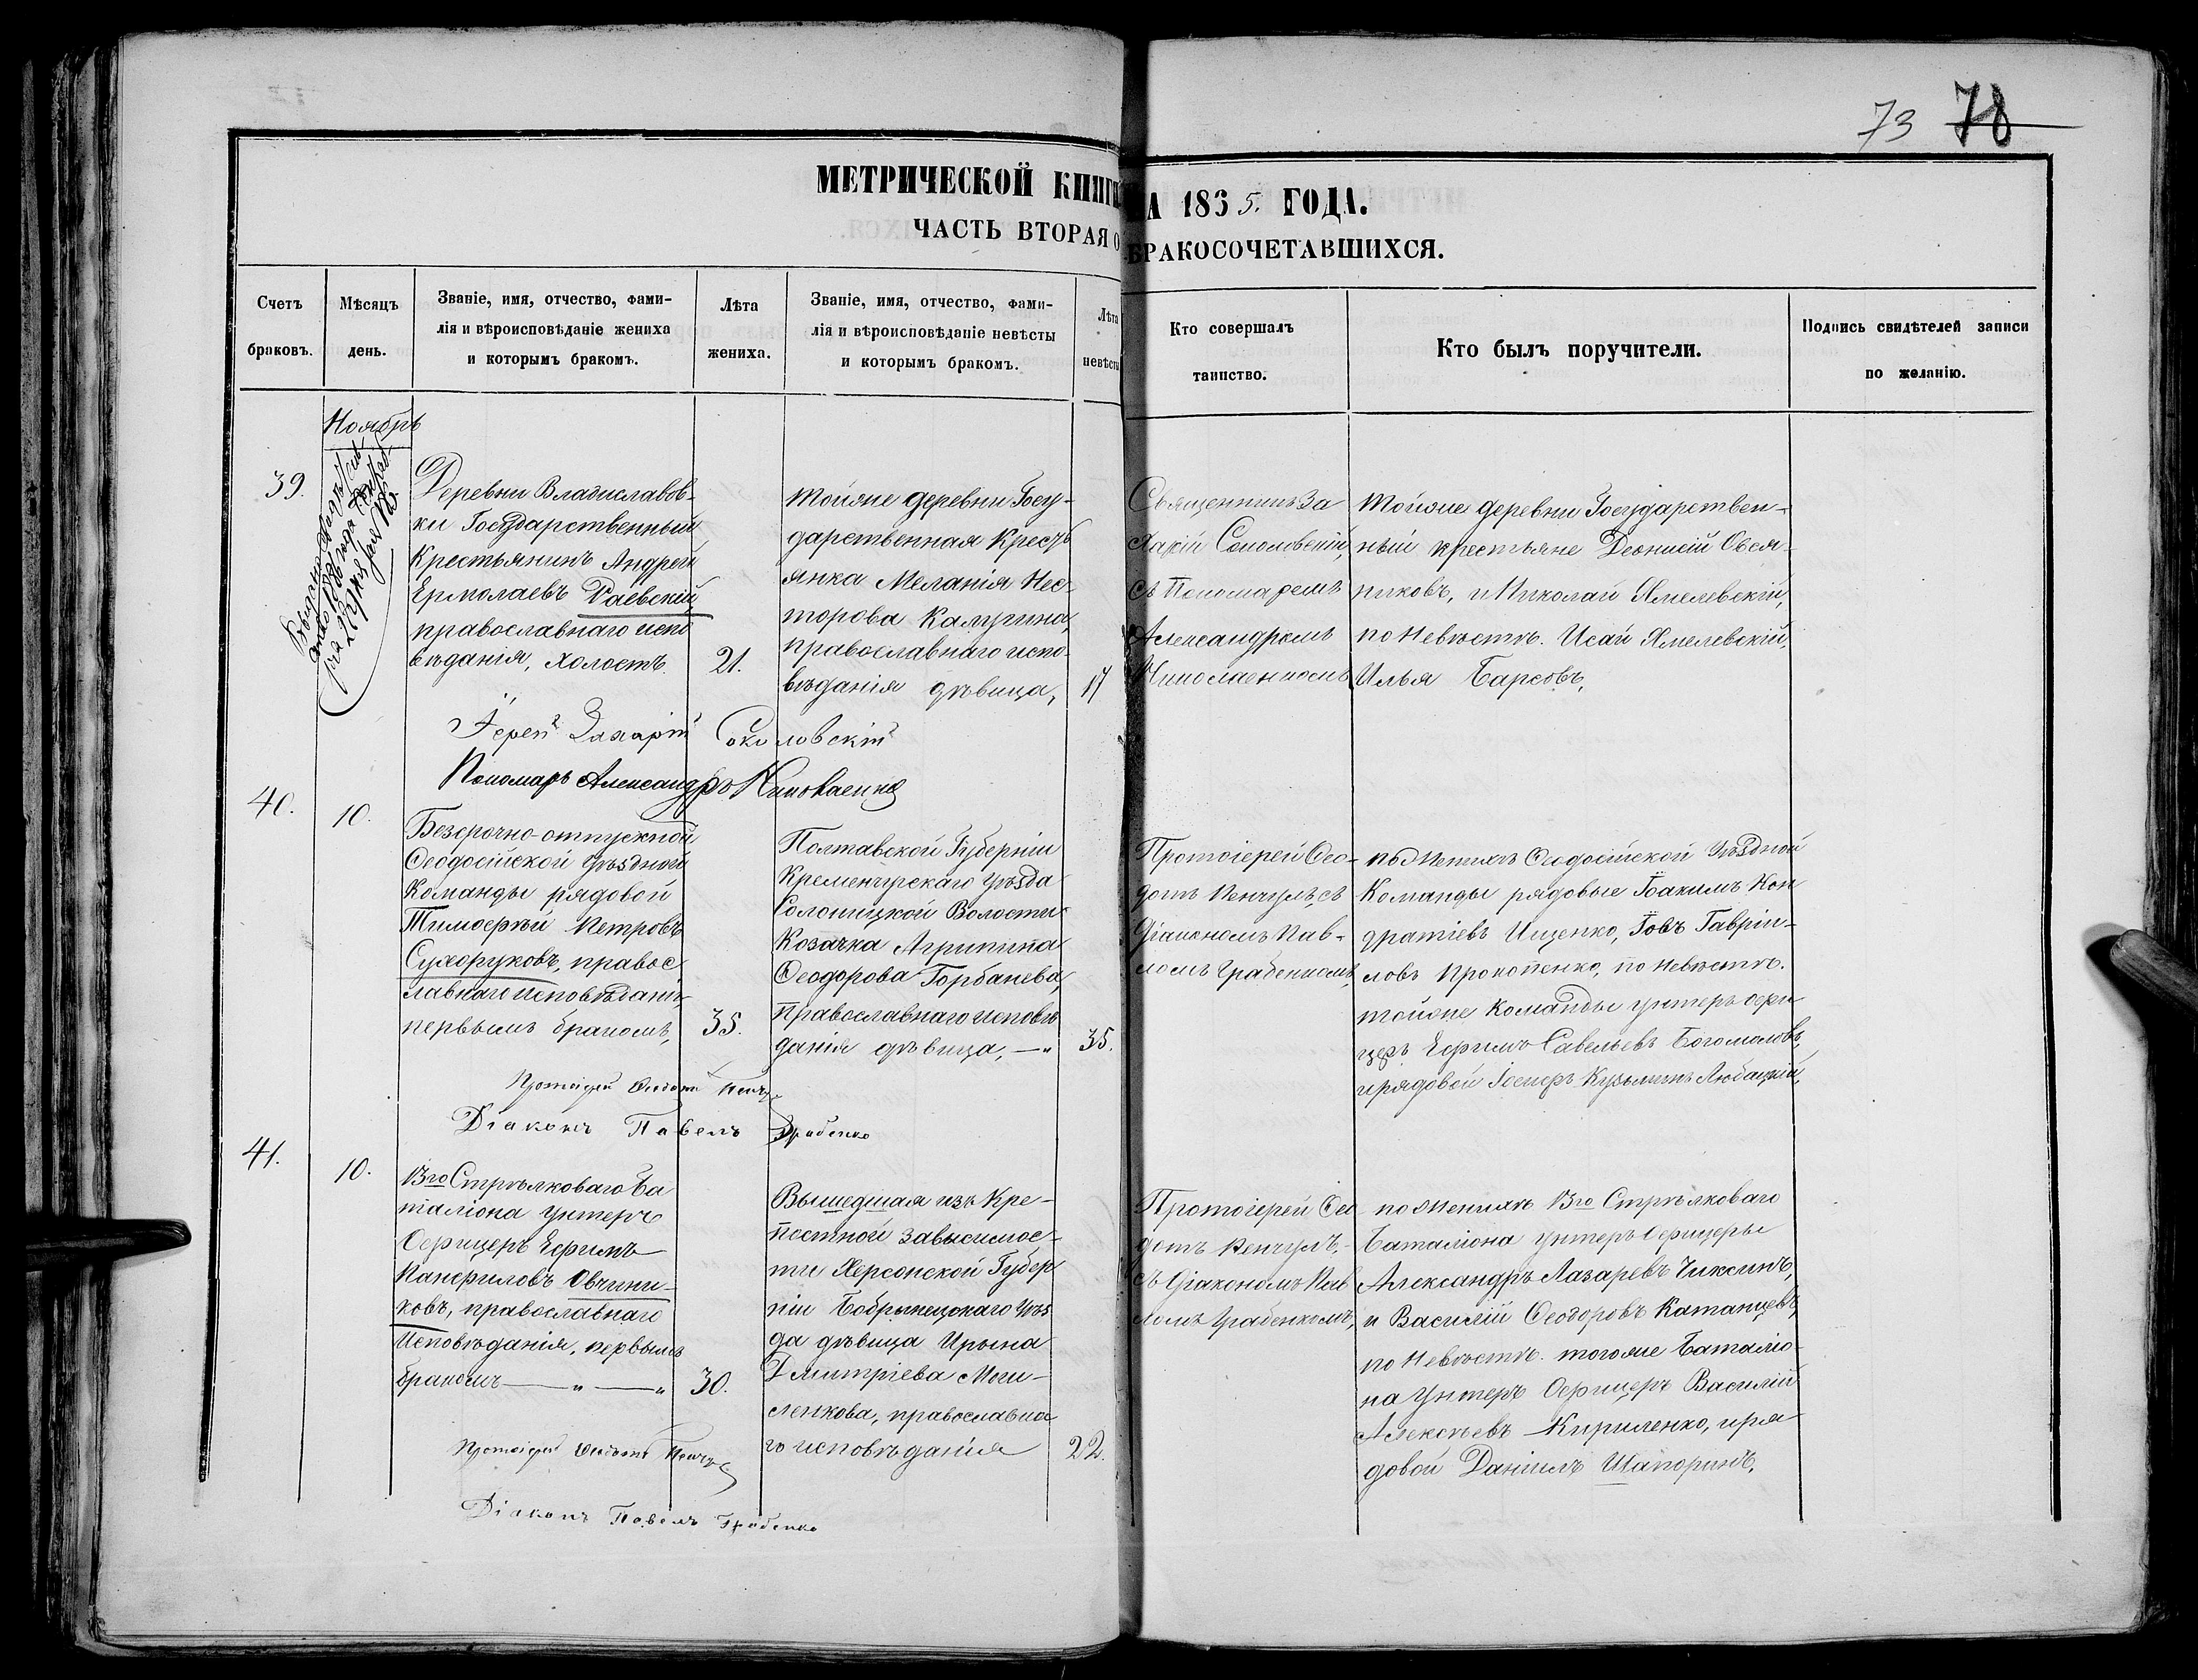 73 78
МЕТРИЧЕСКОЙ КНИГИ НА 1865. ГОДА.
ЧАСТЬ ВТОРАЯ О БРАКОСОЧЕТАВШИХСЯ.
Счетъ
браковъ.
Мѣсяцъ
день.
Званіе, имя, отчество, фами-
лія и вѣроисповѣданіе жениха
и которымъ бракомъ.
Лѣта
жениха.
Званіе, имя, отчество, фами-
лія и вѣроисповѣданіе невѣсты
и которымъ бракомъ.
Лѣта
невѣсты
Кто совершалъ
таинство.
Кто былъ поручители.
Подпись свидѣтелей записи
по желанію.
Ноябрь
39.
Деревни Владиславов-
ки Государственный
Крестьянинъ Андрей
Ермолаевъ Раевскій,
православнаго испо
вѣданія, холостъ.
21.
тойже деревни Госу-
дарственная Крестъ
янка Меланія Нес-
торова Калугина,
православнаго испо-
вѣданія дѣвица,
17
Священникъ За
харій Соколовскій,
съ Пономаремъ
Александромъ
тойже деревни Государствен-
ный крестьяне Деонисій Овся-
никовъ, и Николай Ямелевскій,
по Невѣстѣ. Исай Ямелевскій,
Илья Барсовъ,
Іерей Захарій Соколовскій
Пономарь Александръ
40.
10.
Безсрочно-отпускной
Ѳеодосійской Уѣздной
Команды рядовой
Тимоѳей Петровъ
Сухоруковъ, правос
лавнаго исповѣданія,
первымъ бракомъ,
35.
Полтавской Губерніи
Кременчугскаго Уѣзда
Волости
Козачка Агрипина
Ѳеодорова Горбанева,
Православнаго исповѣ
данія дѣвица, —„
35.
Протоіерей Ѳео-
дотъ Кенчулъ, съ
Діакономъ Пав-
ломъ Грабенкомъ,
по Женихѣ Ѳеодосійской Уѣздной
Команды рядовые Іоакимъ Кон
дратіевъ Ищенко, Іовъ Гаврии-
ловъ Прокопенко, по Невѣстѣ.
тойже Команды унтеръ офи
церъ Ефимъ Савельевъ Богомоловъ,
и рядовой Іосифъ Кузьминъ
Протоіерей Ѳеодотъ
Діаконъ Павелъ Грабенко
41.
10.
13го Стрѣлковаго Ба
таліона унтеръ
Офицеръ Ефимъ
Панфиловъ Овчини-
ковъ, православнаго
Исповѣданія, первымъ
бракомъ — „ — „
30.
Вышедшая изъ Кре-
постной зависимос-
ти Херсонской Губер
ніи Бобрынецкаго Уѣз
да дѣвица Ирына
Дмитріева Моги-
ленкова, православна
го исповѣданія
22.
Протоіерей Ѳео
дотъ Кенчулъ, -
съ Діакономъ Пав
ломъ Грабенкомъ,
по Женихѣ 13го Стрѣлковаго
Баталіона унтеръ Офицеры
Александръ Лазаревъ Чиксинъ,
и Василій Ѳеодоровъ Катанцевъ,
по Невѣстѣ. тогоже Баталіо-
на Унтеръ Офицеръ Василій
Алексѣевъ Кириленко, и ря
довой Даніилъ Шапоринъ,
Протоіерей Ѳеодотъ
Діаконъ Павелъ Грабенко